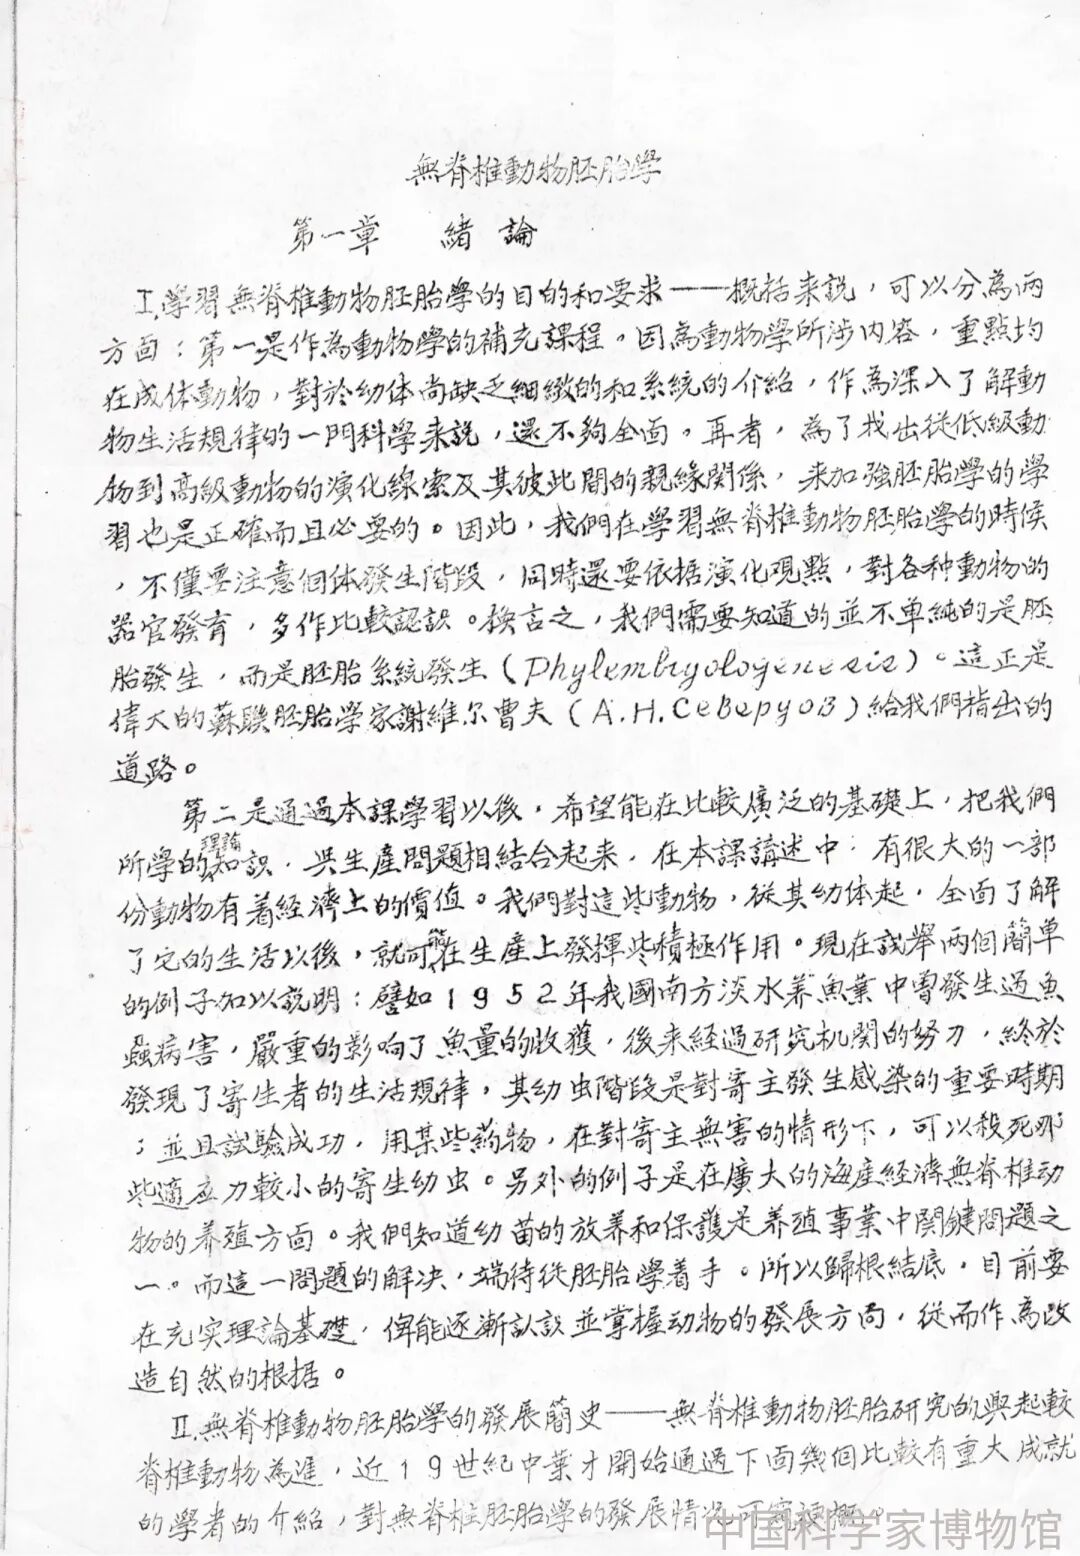 無脊椎動物胚胎學
第一章 緒論
I.學習無脊椎動物胚胎學的目的和要求——概括来説，可以分為兩
方面：第一是作為動物學的補充課程。因為動物學所涉内容，重點均
在成体動物，對於幼体尚缺乏細緻的和系統的介紹，作為深入了解動
物生活規律的一門科學来説，還不夠全面。再者，為了找出從低級動
物到高級動物的演化線索及其彼此間的親緣関係，来加強胚胎學的學
習也是正確而且必要的。因此，我們在學習無脊椎動物胚胎學的時候
，不僅要注意個体發生階段，同時還要依据演化观點，對各种動物的
器官發育，多作比較認識。換言之，我們需要知道的並不单純的是胚
胎發生，而是胚胎系統發生（Phylembryologenesis）。這正是
偉大的蘇聯胚胎學家謝維尔曹夫（А.Н.Севеpуов）給我們指出的
道路。
第二是通過本課學習以後，希望能在比較廣泛的基礎上，把我們
所學的理論知識，與生産問題相結合起来，在本課講述中，有很大的一部
份動物有着経濟上的價值。我們對這些動物，從其幼体起，全面了解
了它的生活以後，就可能在生産上發揮些積極作用。現在試举兩個簡单
的例子加以説明：譬如1952年我國南方淡水养魚業中曾發生過魚
蝨病害，嚴重的影响了魚量的收獲，後来経過研究机関的努力，終於
發現了寄生者的生活規律，其幼虫階段是對寄主發生感染的重要時期
；並且試驗成功，用某些药物，在對寄主無害的情形下，可以殺死那
些適应力較小的寄生幼虫。另外的例子是在廣大的海産経濟無脊椎动
物的养殖方面。我們知道幼苗的放养和保護是养殖事業中関鍵問題之
一。而這一問題的解决，端待從胚胎學着手。所以歸根結底，目前要
在充实理論基礎，俾能逐漸認識並掌握动物的發展方向，從而作為改
造自然的根据。
II.無脊椎動物胚胎學的發展簡史——無脊椎動物胚胎研究的興起較
脊椎動物為遲，近19世紀中葉才開始通過下面幾個比較有重大成就
的學者的介紹，對無脊椎胚胎學的發展情况可窺梗概。
中国科学家博物馆